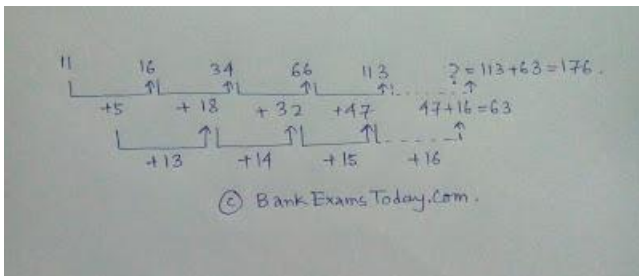 11 16 34 66 113 ? = 113+63=176.
+5 + 18 + 32 +47 47+16=63
+13 +14 +15 +16
© BankExamsToday.Com.